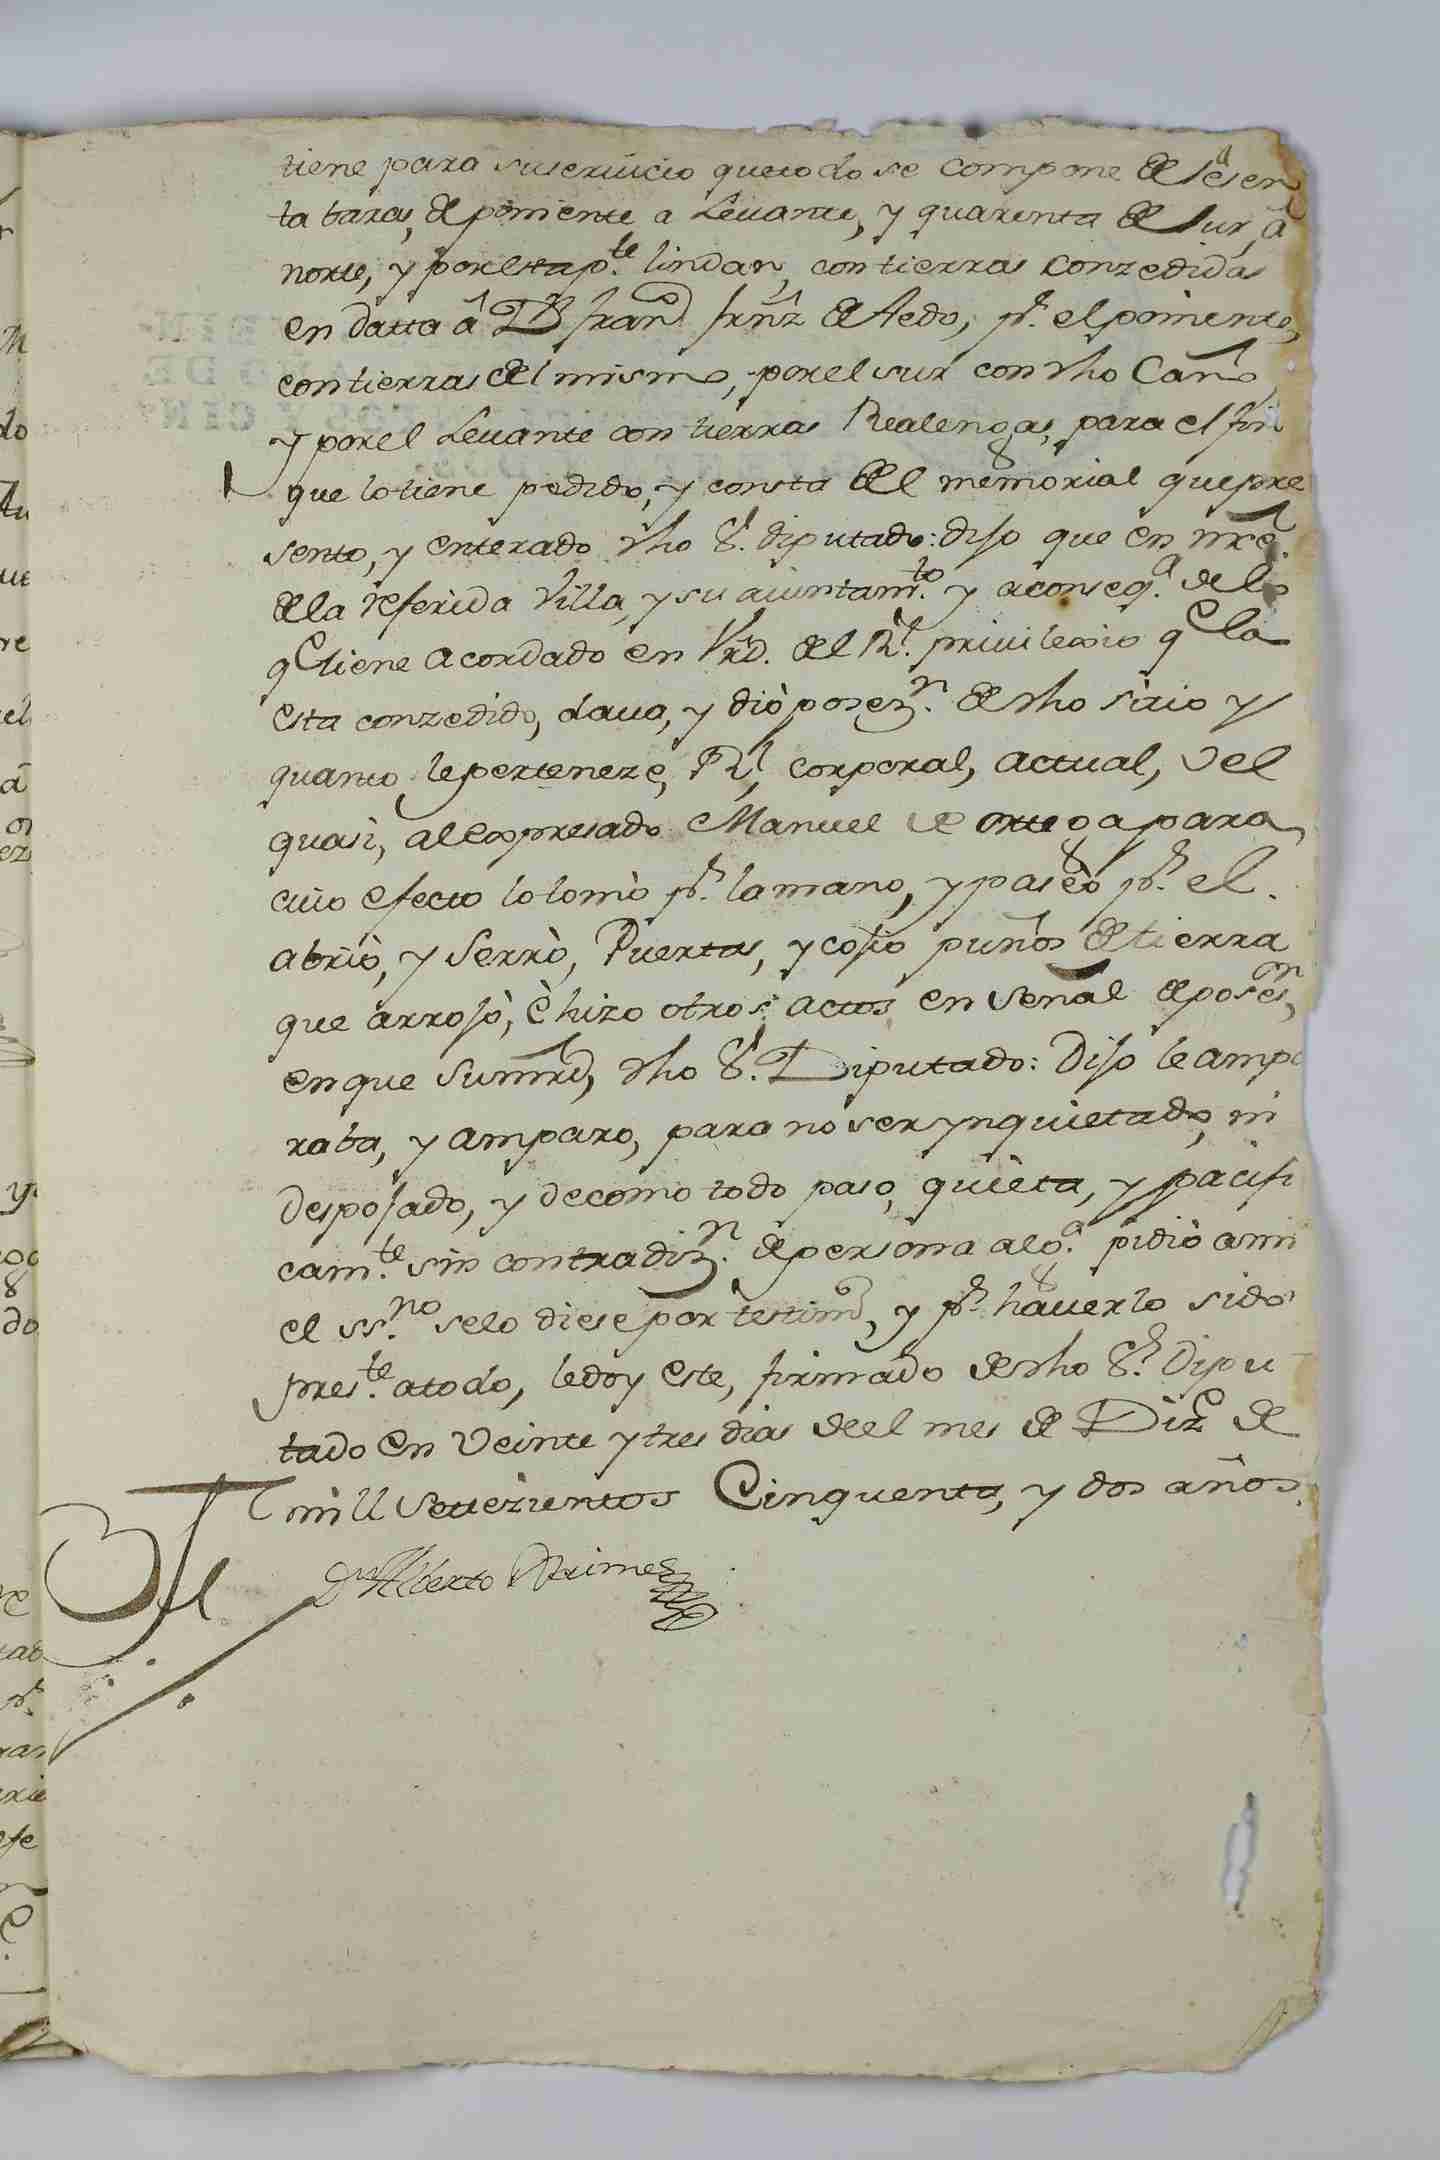 tiene para suseruicio quetodo se compone de sesen
ta baras, de poniente a Leuante, y quarenta de sur, â
norte, y poresta p.te lindan, con tierras conzedidas
en datta â Dn fran.co frñz de Aedo, pr. el poniente,
con tierras del mismo, por el sur con dho Cam.o
y por el Leuante con tierras Realengas, para el fin
que lo tiene pedido, y consta del memorial que pre
sento, y enterado dho Sr. diputado: dijo que en nrê.
de la referida Villa, y su aiuntam.to y a conseq.a de lo
qe tiene acordado en Vrd. del Rl. priuilexio qe la
esta conzedido, daua, y diò posez.n de dho sitio y
quanto lepertenezê, Rl, corporal, actual, vel
quasi, al expresado Manuel de ortega para
cuio efecto lo tomò pr. la mano, y paseò pr. el.
abriò, y Serrò, Puertas, y cojio puños de tierra
que arrojò, è hizo otros actos en señal de poses.n,
en que su mrd, dho Sr. Diputado: Dijo le ampa
raba, y amparo, para no ser ynquietado, ni
despojado, y de como todo paso, quieta, y pacifi
cam.te sin contradiz.n de persona alg.a pidiò a mi
el ss.no selo diese por testim.o, y pr. hauerlo sido
pres.te a todo, le doy este, firmado de dho Sr. Dipu
tado en Veinte y tres dias de el mes de Dize de
mill settezientos Cinquenta, y dos años.
Dn Alberto Ximenez